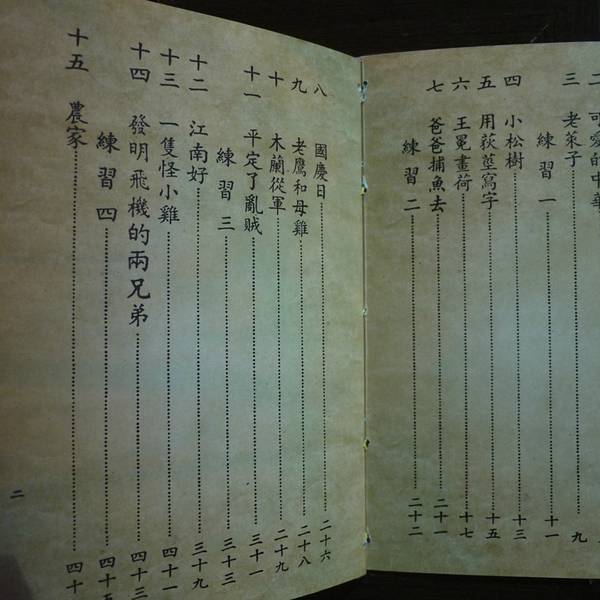 二 可愛的中華
三 老萊子 九
練習一 十一
四 小松樹 十三
五 用荻莖寫字 十五
六 王冕畫荷 十七
七 爸爸捕魚去 二十一
練習二 二十二
八 國慶日 二十六
九 老鷹和母雞 二十八
十 木蘭從軍 二十九
十一 平定了亂賊 三十一
練習三 三十三
十二 江南好 三十九
十三 一隻怪小雞 四十一
十四 發明飛機的兩兄弟 四十三
練習四 四十五
十五 農家 四十
二